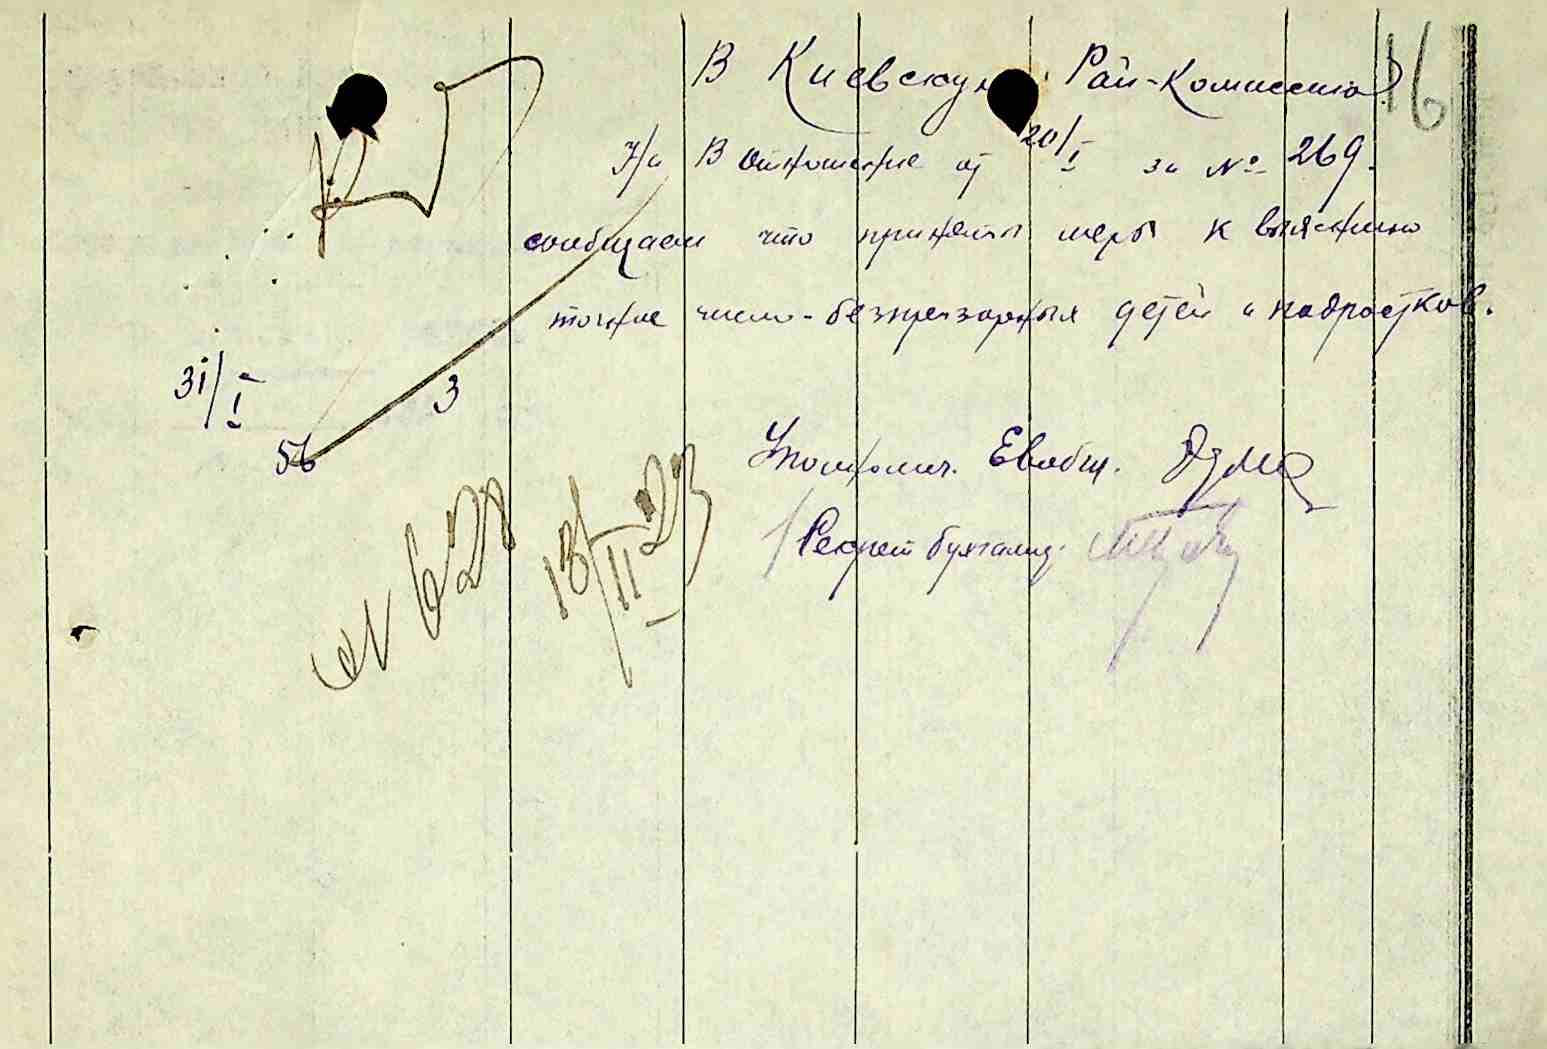 16
В Киевскую Рай-Комиссию
На В отношение от 20/I за № 269.
сообщаем что приняты меры к выяснению
точное число безпризорных детей и подростков.
31/I
3
56
Уполномоч. Евобщ.
Секрет
№ 628
13/II 23